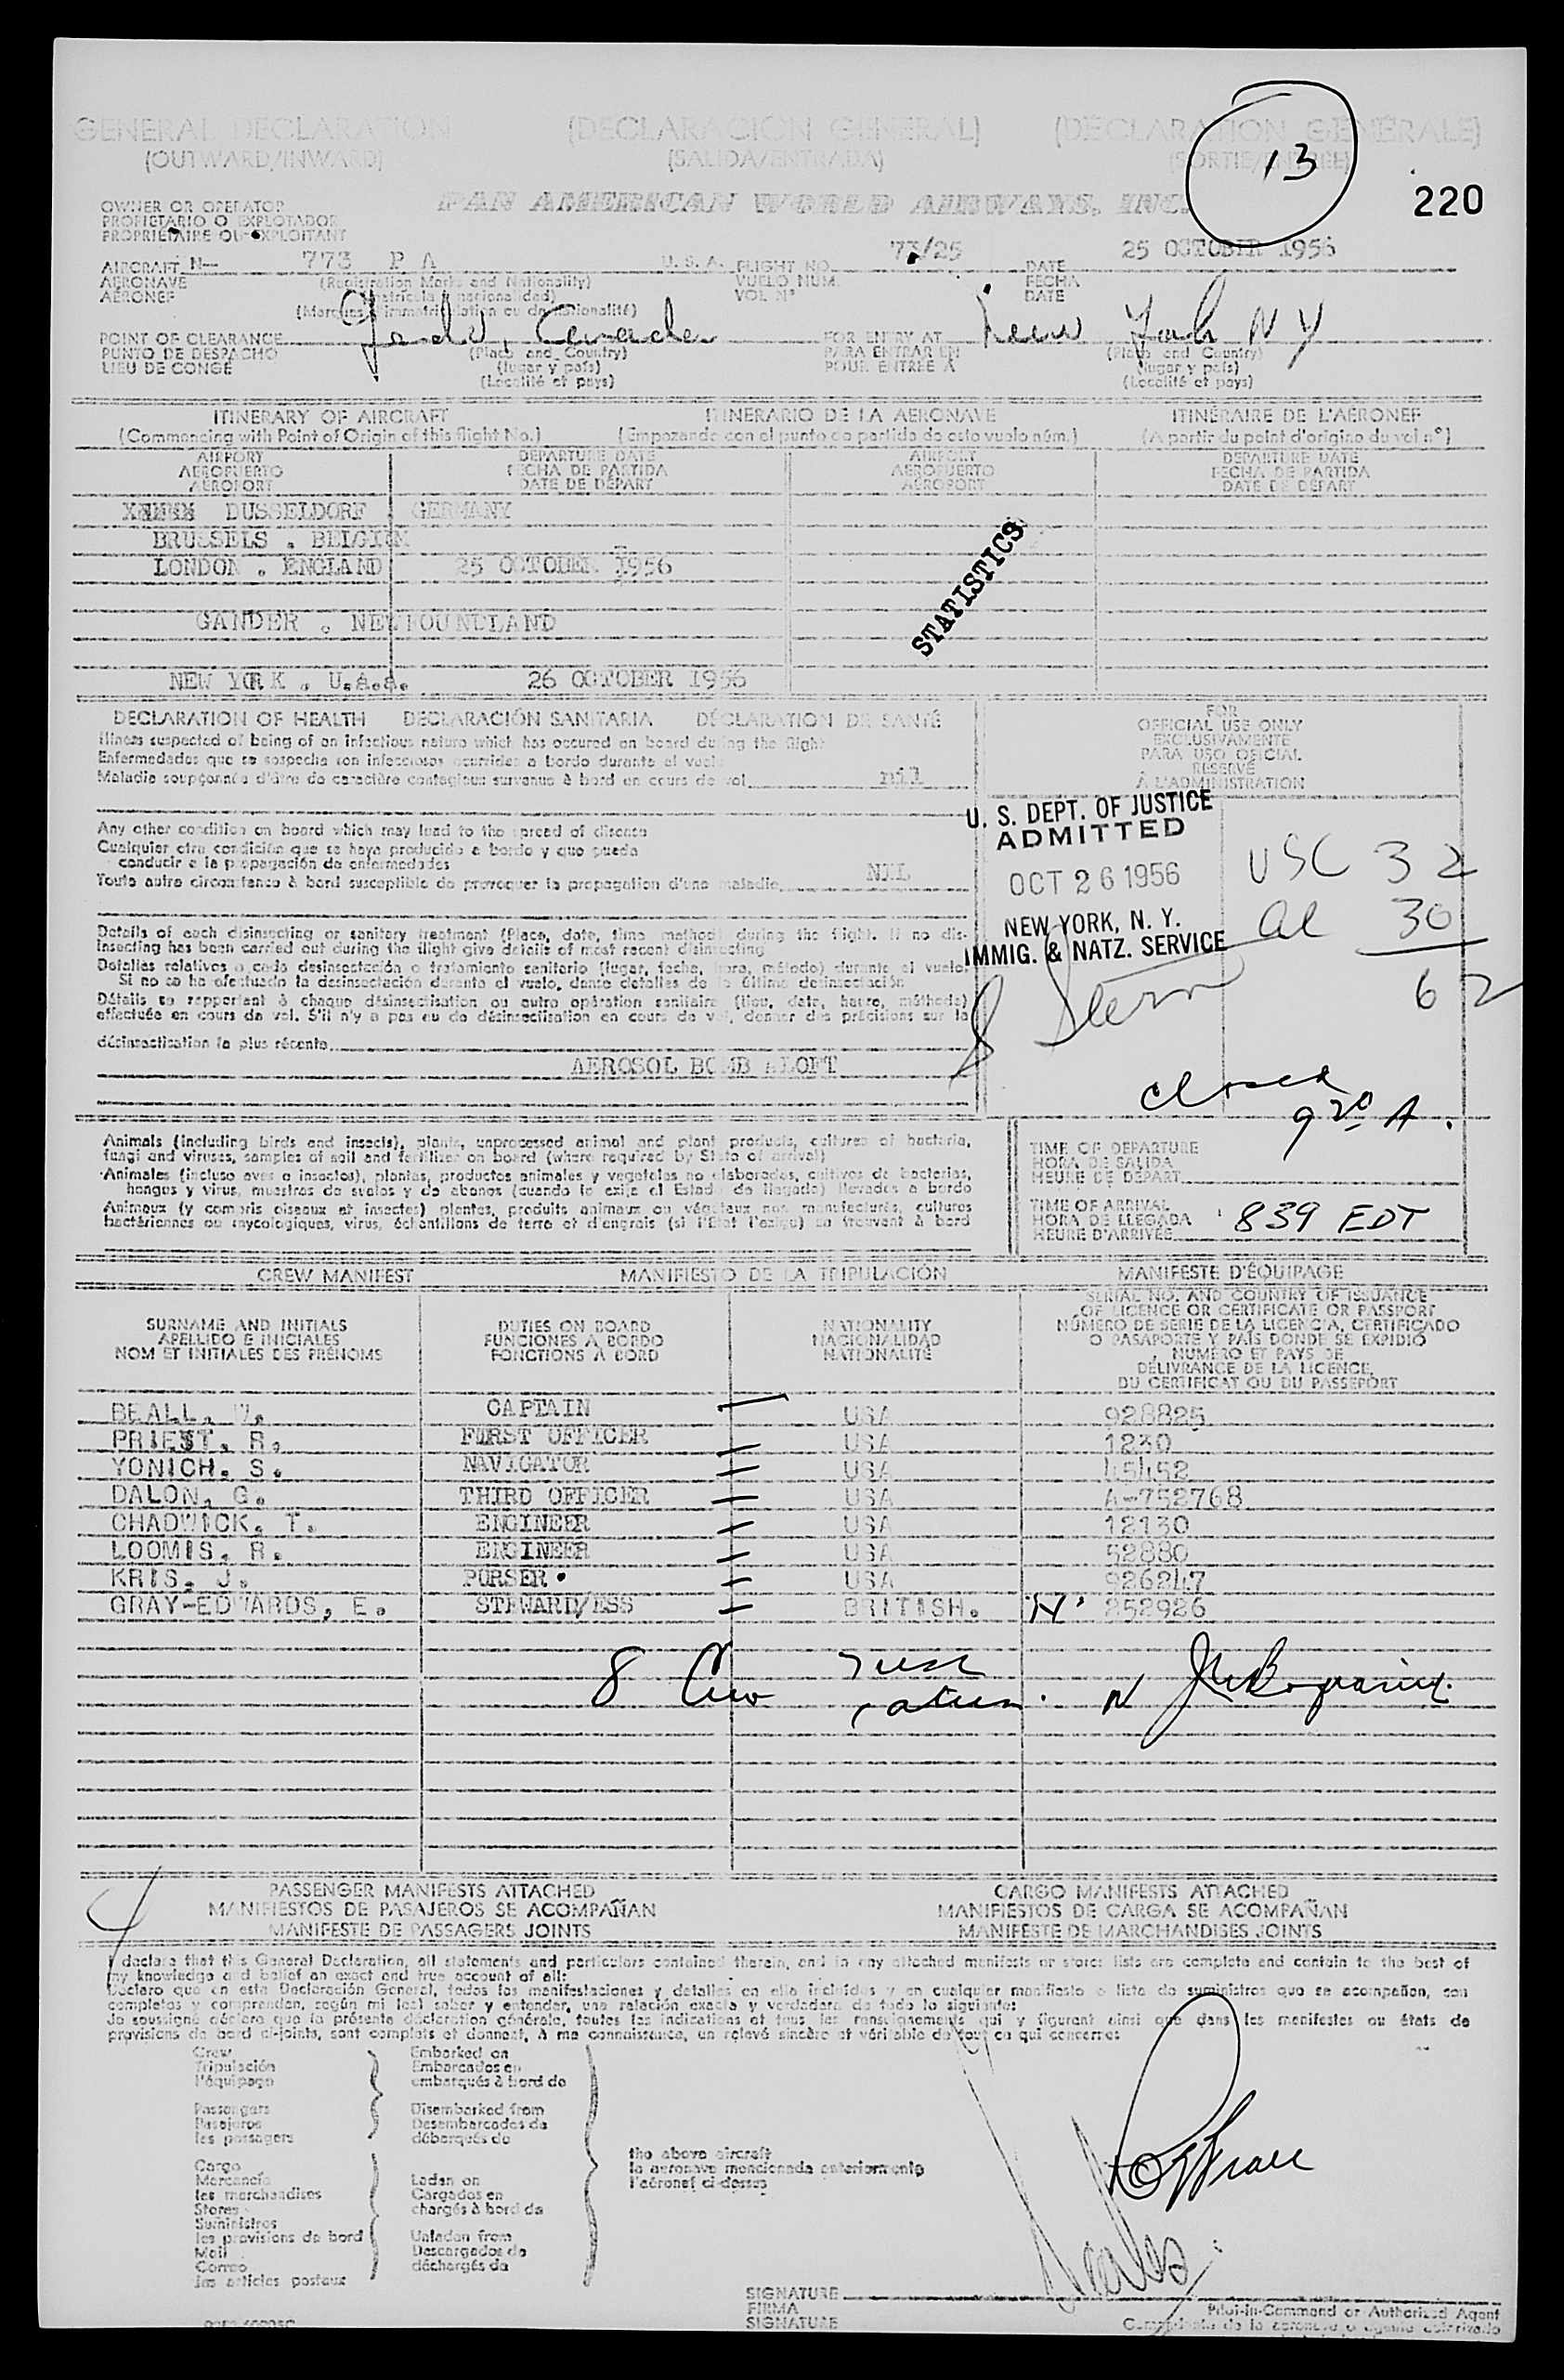 13
220
GENERAL DECLARATION (DECLARACIÓN GENERAL) (DÉCLARATION GÉNÉRALE)
(OUTWARD/INWARD) (SALIDA/ENTRADA) (SORTIE/ENTRÉE)
OWNER OR OPERATOR PAN AMERICAN WORLD AIRWAYS, INC.
PROPIETARIO O EXPLOTADOR
PROPRIÉTAIRE OU EXPLOITANT
AIRCRAFT N- 773 PA U.S.A. FLIGHT NO. 73/25 DATE 25 OCTOBER 1956
AERONAVE (Registration Marks and Nationality) VUELO NUM. FECHA
AÉRONEF (matrícula y nacionalidad) VOL Nº DATE
(Marques d'immatriculation ou de nationalité)
POINT OF CLEARANCE Canada FOR ENTRY AT New York N Y
PUNTO DE DESPACHO (Place and Country) PARA ENTRAR EN (Place and Country)
LIEU DE CONGÉ (lugar y país) POUR ENTRÉE À (lugar y país)
(Localité et pays) (Localité et pays)
ITINERARY OF AIRCRAFT ITINERARIO DE LA AERONAVE ITINÉRAIRE DE L'AÉRONEF
(Commencing with Point of Origin of this flight No.) (Empezando con el punto de partida de este vuelo núm.) (A partir du point d'origine du vol nº)
AIRPORT DEPARTURE DATE AIRPORT DEPARTURE DATE
AEROPUERTO FECHA DE PARTIDA AEROPUERTO FECHA DE PARTIDA
AÉROPORT DATE DE DÉPART AÉROPORT DATE DE DÉPART
DUSSELDORF . GERMANY
BRUSSELS . BELGIUM
LONDON . ENGLAND 25 OCTOBER 1956
STATISTICS
GANDER . NEWFOUNDLAND
NEW YORK . U.S.A. 26 OCTOBER 1956
DECLARATION OF HEALTH DECLARACIÓN SANITARIA DÉCLARATION DE SANTÉ
Illness suspected of being of an infectious nature which has occured on board during the flight
Enfermedades que se sospecha son infecciosas ocurridas a bordo durante el vuelo
Maladie soupçonnée d'être de caractère contagieux survenue à bord en cours de vol nil
FOR
OFFICIAL USE ONLY
EXCLUSIVAMENTE
PARA USO OFICIAL
RESERVÉ
À L'ADMINISTRATION
Any other condition on board which may lead to the spread of disease
Cualquier otra condición que se haya producido a bordo y que pueda
conducir a la propagación de enfermedades
Toute autre circonstance à bord susceptible de provoquer la propagation d'une maladie NIL
U. S. DEPT. OF JUSTICE
ADMITTED
OCT 26 1956
NEW YORK, N. Y.
IMMIG. & NATZ. SERVICE
S Stern
USC 32
al 30
62
closed
9 20 A.
Details of each disinsecting or sanitary treatment (Place, date, time method) during the flight. If no dis-
insecting has been carried out during the flight give details of most recent disinsecting
Detalles relativos a cada desinsectación o tratamiento sanitario (lugar, fecha, hora, método) durante el vuelo.
Si no se ha efectuado la desinsectación durante el vuelo, dense detalles de la última desinsectación
Détails se rapportant à chaque désinsectisation ou autre opération sanitaire (lieu, date, heure, méthode)
effectuée en cours de vol. S'il n'y a pas eu de désinsectisation en cours de vol, donner des précisions sur la
désinsectisation la plus récente
AEROSOL BOMB ALOFT
Animals (including birds and insects), plants, unprocessed animal and plant products, cultures of bacteria,
fungi and viruses, samples of soil and fertilizer on board (where required by State of arrival)
Animales (incluso aves e insectos), plantas, productos animales y vegetales no elaborados, cultivos de bacterias,
hongos y virus, muestras de suelos y de abonos (cuando lo exija el Estado de llegada) llevados a bordo
Animaux (y compris oiseaux et insectes) plantes, produits animaux ou végétaux non manufacturés, cultures
bactériennes ou mycologiques, virus, échantillons de terre et d'engrais (si l'État l'exige) se trouvant à bord
TIME OF DEPARTURE
HORA DE SALIDA
HEURE DE DÉPART
TIME OF ARRIVAL
HORA DE LLEGADA 839 EDT
HEURE D'ARRIVÉE
CREW MANIFEST MANIFIESTO DE LA TRIPULACIÓN MANIFESTE D'ÉQUIPAGE
SURNAME AND INITIALS DUTIES ON BOARD NATIONALITY SERIAL NO. AND COUNTRY OF ISSUANCE
APELLIDO E INICIALES FUNCIONES A BORDO NACIONALIDAD OF LICENCE OR CERTIFICATE OR PASSPORT
NOM ET INITIALES DES PRÉNOMS FONCTIONS À BORD NATIONALITÉ NÚMERO DE SERIE DE LA LICENCIA, CERTIFICADO
O PASAPORTE Y PAÍS DONDE SE EXPIDIÓ
NUMÉRO ET PAYS DE
DÉLIVRANCE DE LA LICENCE,
DU CERTIFICAT OU DU PASSEPORT
BEALL, W. CAPTAIN USA 928825
PRIEST, R. FIRST OFFICER USA 1230
YONICH, S. NAVIGATOR USA 45452
DALON, G. THIRD OFFICER USA A-752768
CHADWICK, T. ENGINEER USA 12130
LOOMIS, R. ENGINEER USA 52880
KRIS, J. PURSER USA 926247
GRAY-EDWARDS, E. STEWARD/ESS BRITISH. 252926
8 Crew
PASSENGER MANIFESTS ATTACHED CARGO MANIFESTS ATTACHED
MANIFIESTOS DE PASAJEROS SE ACOMPAÑAN MANIFIESTOS DE CARGA SE ACOMPAÑAN
MANIFESTE DE PASSAGERS JOINTS MANIFESTE DE MARCHANDISES JOINTS
I declare that this General Declaration, all statements and particulars contained therein, and in any attached manifests or stores lists are complete and contain to the best of
my knowledge and belief an exact and true account of all:
Declaro que en esta Declaración General, todas las manifestaciones y detalles en ella incluidos y en cualquier manifiesto o lista de suministros que se acompañan, son
completos y comprenden, según mi leal saber y entender, una relación exacta y verdadera de todo lo siguiente:
Je soussigné déclare que la présente déclaration générale, toutes les indications et tous les renseignements qui y figurent ainsi que dans les manifestes ou états de
provisions de bord ci-joints, sont complets et donnent, à ma connaissance, un relevé sincère et véritable de tout ce qui concerne:
Crew Embarked on
Tripulación Embarcados en
l'équipage embarqués à bord de
Passengers Disembarked from
Pasajeros Desembarcados de
les passagers débarqués de
the above aircraft
la aeronave mencionada anteriormente
l'aéronef ci-dessus
Cargo
Mercancía Laden on
les marchandises Cargados en
Stores chargés à bord de
Suministros
les provisions de bord Unladen from
Mail Descargados de
Correo déchargés de
les articles postaux
SIGNATURE
FIRMA Pilot-in-Command or Authorized Agent
SIGNATURE